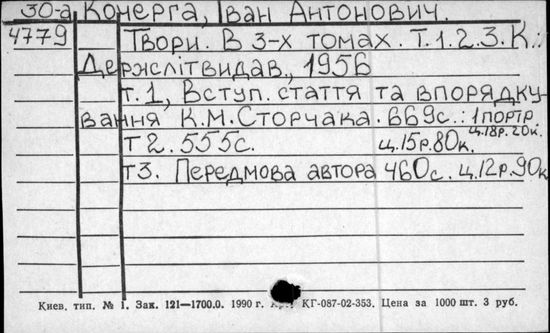 30-а Кочерга, Іван Антонович.
4779 Твори. В 3-х томах. Т.1.2.3. К.:
Держлітвидав., 1956
т. 1, Вступ. стаття та впорядку-
вання К.М.Сторчака. 669с.: 1портр.
ц.18р.20к.
Т 2. 555с. ц.15р.80к.
т3. Передмова автора 460с. ц.12р.90к
Киев. тип. № 1. Зак. 121—1700.0. 1990 г. КГ-087-02-353. Цена за 1000 шт. 3 руб.